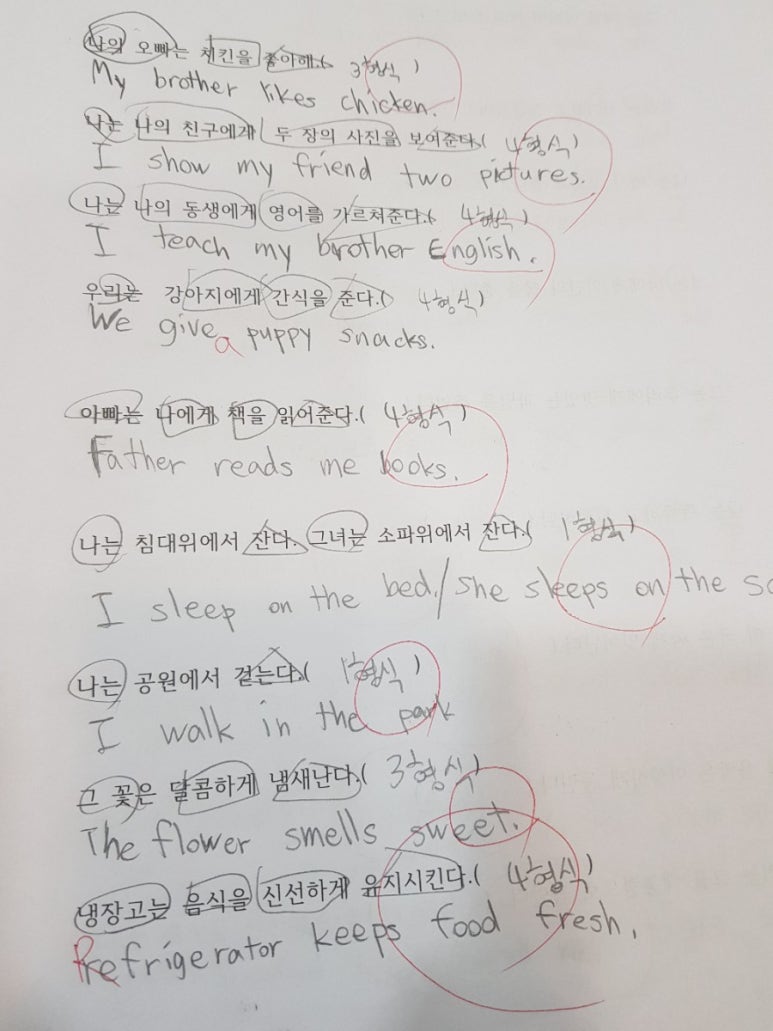 나의 오빠는 치킨을 좋아해.( 3형식 )
My brother likes chicken.
나는 나의 친구에게 두 장의 사진을 보여준다.( 4형식 )
I show my friend two pictures.
나는 나의 동생에게 영어를 가르쳐준다.( 4형식 )
I teach my brother English.
우리는 강아지에게 간식을 준다.( 4형식 )
We give a puppy snacks.
아빠는 나에게 책을 읽어준다.( 4형식 )
Father reads me books.
나는 침대위에서 잔다. 그녀는 소파위에서 잔다.( 1형식 )
I sleep on the bed./She sleeps on the so
나는 공원에서 걷는다.( 1형식 )
I walk in the park
그 꽃은 달콤하게 냄새난다.( 3형식 )
The flower smells sweet.
냉장고는 음식을 신선하게 유지시킨다.( 4형식 )
Refrigerator keeps food fresh.